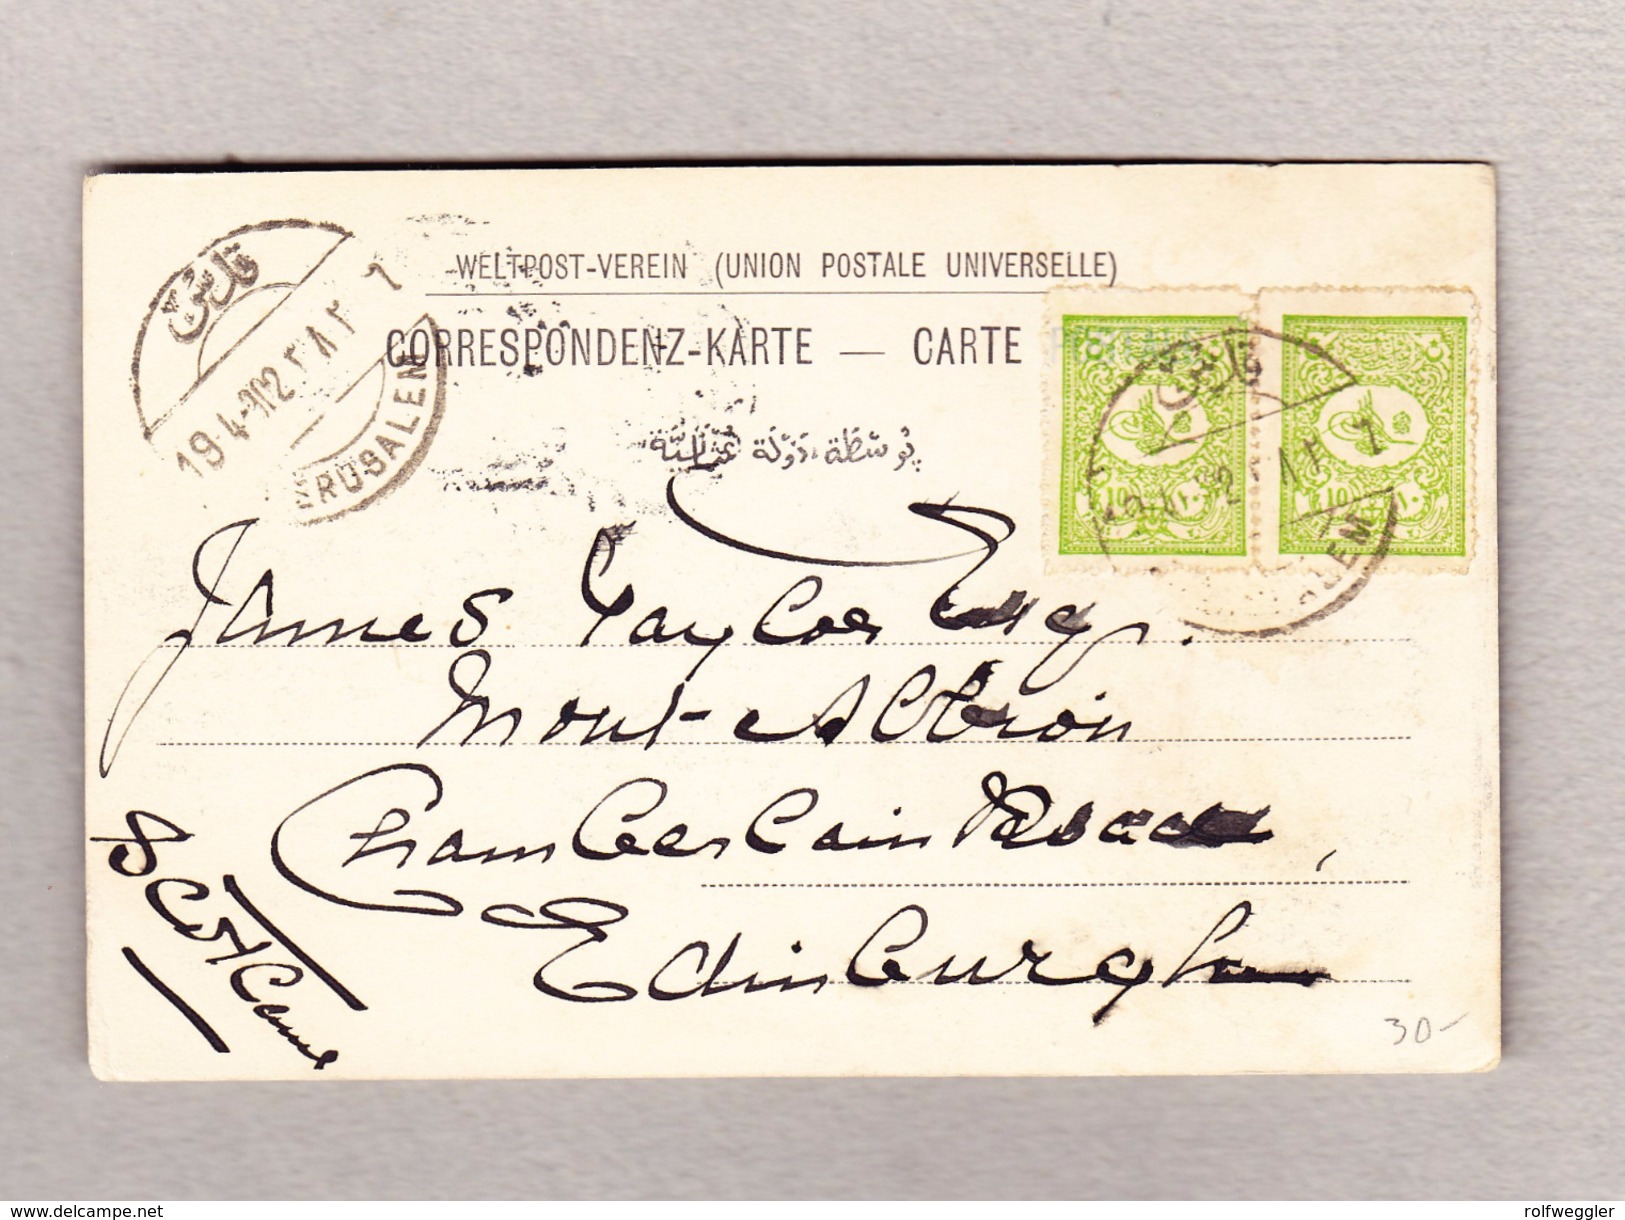 WELTPOST-VEREIN (UNION POSTALE UNIVERSELLE)
CORRESPONDENZ-KARTE — CARTE
قدس
19·4-902
JERUSALEM
10
10
James Taylor Esq.
Mont-Albion
Chamberlain Road,
Edinburgh
30-
www.delcampe.net
rolfweggler